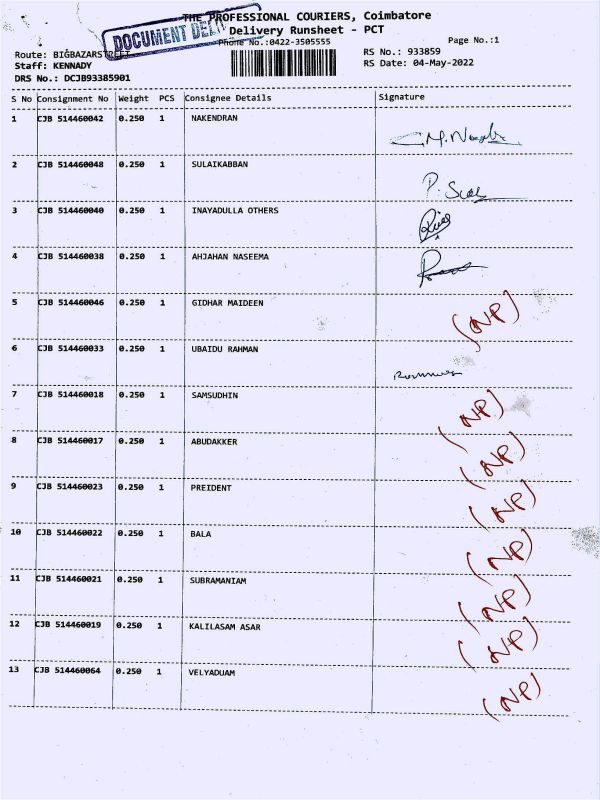 THE PROFESSIONAL COURIERS, Coimbatore
DOCUMENT DEL
Delivery Runsheet - PCT
Phone No.:0422-3505555
Page No.:1
Route: BIGBAZARSTREET
RS No.: 933859
Staff: KENNADY
RS Date: 04-May-2022
DRS No.: DCJB93385901
S No Consignment No Weight PCS Consignee Details Signature
1 CJB 514460042 0.250 1 NAKENDRAN
2 CJB 514460048 0.250 1 SULAIKABBAN
3 CJB 514460040 0.250 1 INAYADULLA OTHERS
4 CJB 514460038 0.250 1 AHJAHAN NASEEMA
5 CJB 514460046 0.250 1 GIDHAR MAIDEEN (NP)
6 CJB 514460033 0.250 1 UBAIDU RAHMAN
7 CJB 514460018 0.250 1 SAMSUDHIN (NP)
8 CJB 514460017 0.250 1 ABUDAKKER (NP)
9 CJB 514460023 0.250 1 PREIDENT (NP)
10 CJB 514460022 0.250 1 BALA (NP)
11 CJB 514460021 0.250 1 SUBRAMANIAM (NP)
12 CJB 514460019 0.250 1 KALILASAM ASAR (NP)
13 CJB 514460064 0.250 1 VELYADUAM (NP)